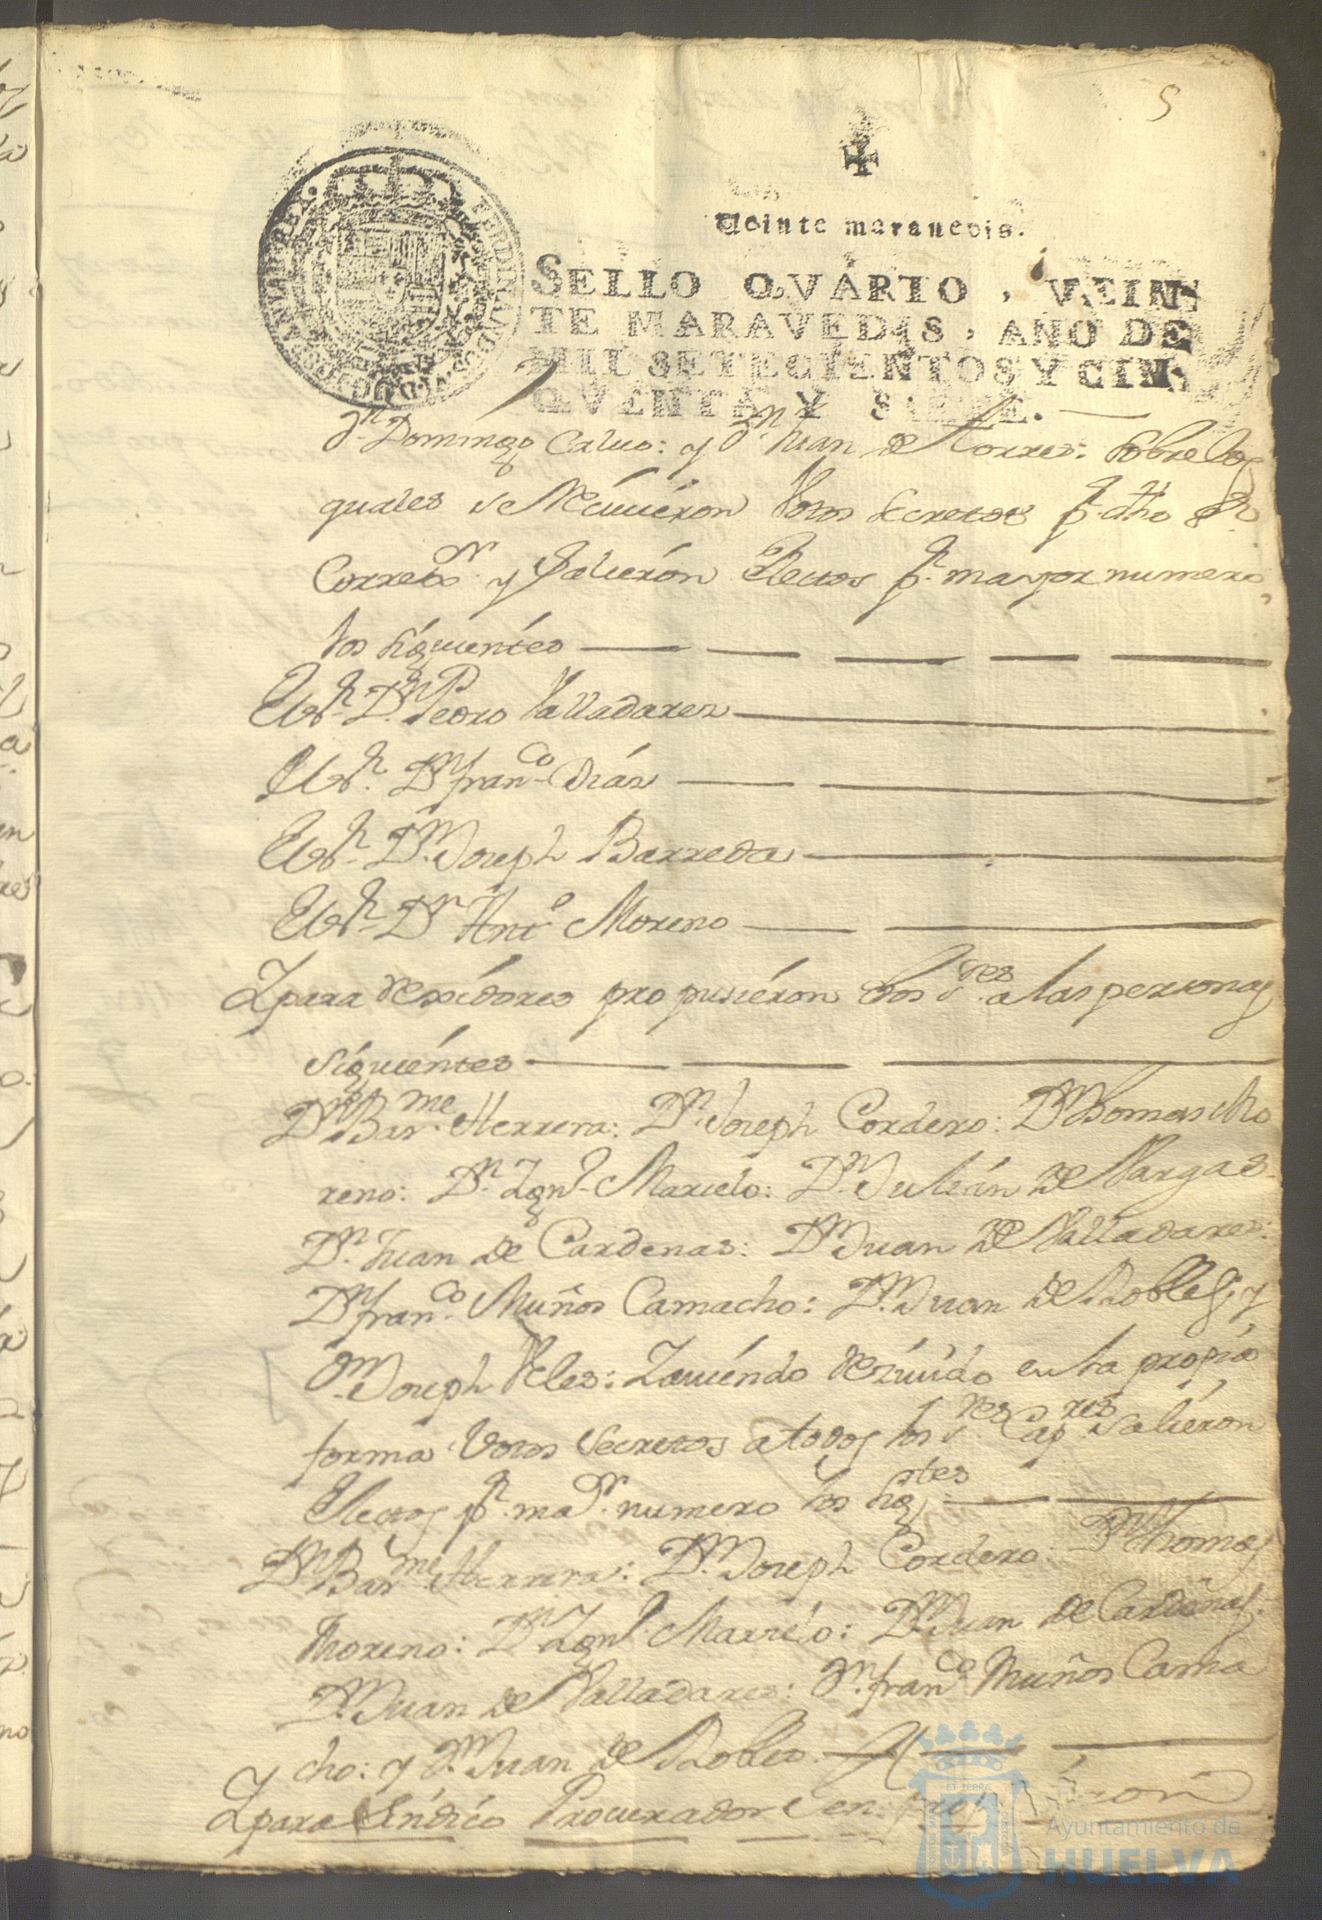 5
Veinte maravedis.
SELLO QVARTO, VEIN
TE MARAVEDIS, AÑO DE
MIL SETECIENTOS Y CIN
QVENTA Y SIETE.
Dn. Domingo Calvo: y Dn. Juan de Torres: Sobre los
quales se Recivieron Votos Secretos pr. dho Sr
Corregor. y Salieron Electos pr. mayor numero
los siguientes
El Sr. Dn. Pedro Valladares
El Sr. Dn. franco. Dias
El Sr. Dn. Joseph Barreda
El Sr. Dn. Anto. Moreno
Y para Rexidores propusieron dhos Sres. a las personas
siguientes
Dn. Barme. Herrera: Dn. Joseph Cordero: Dn. Thomas Mo
reno: Dn. Ygno. Marcelo: Dn. Julian de Vargas
Dn. Juan de Cardenas: Dn. Juan de Valladares:
Dn. franco. Muños Camacho: Dn. Juan de Robles, y
Dn. Joseph Veles: Y haviendo Rezivido en la propia
forma Votos Secretos a todos los Sres. Capres. Salieron
Electos pr. mayr. numero los sigtes
Dn. Barme. Herrera: Dn. Joseph Cordero: Dn. Thomas
Moreno: Dn. Ygno. Marcelo: Dn. Juan de Cardenas:
Dn. Juan de Valladares: Dn. franco. Muños Cama
cho: y Dn. Juan de Robles
Y para Sindico Procurador Gen.
Ayuntamiento de
HUELVA